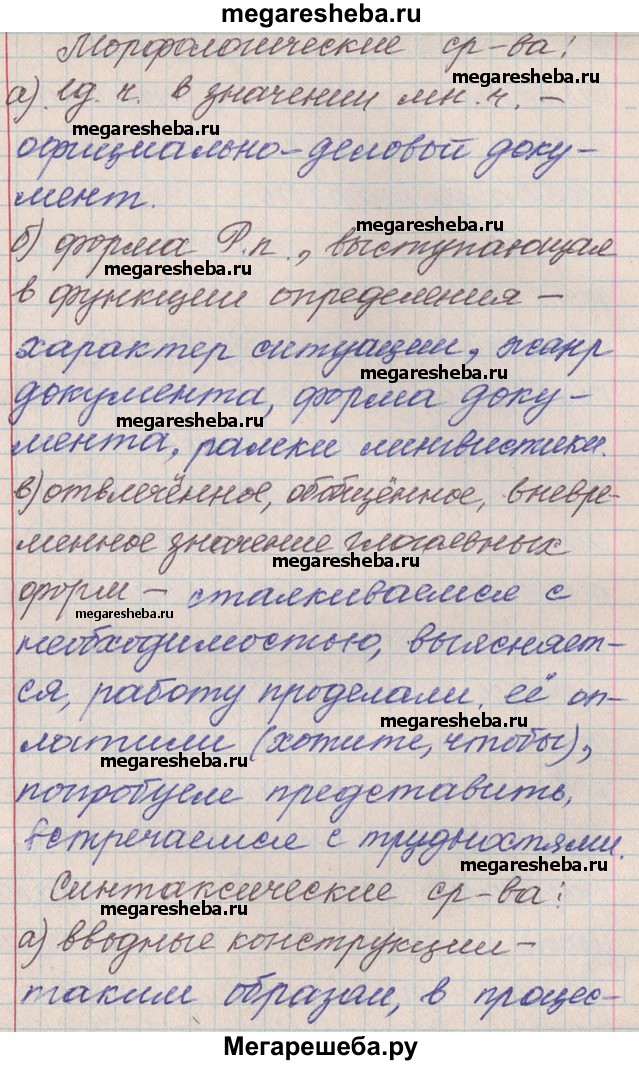 megaresheba.ru
Морфологические ср-ва:
megaresheba.ru
а) ед. ч. в значении мн. ч. –
megaresheba.ru
официально-деловой доку-
мент.
megaresheba.ru
б) форма Р.п., выступающая
megaresheba.ru
в функции определения –
характер ситуации, жанр
megaresheba.ru
документа, форма доку-
megaresheba.ru
мента, рамки лингвистики.
в) отвлечённое, обобщённое, вневре-
менное значение глагольных
megaresheba.ru
форм – сталкиваемся с
megaresheba.ru
необходимостью, выясняет-
ся, работу проделали, её оп-
megaresheba.ru
латили (хотите, чтобы),
megaresheba.ru
попробуем представить,
встречаемся с трудностями.
megaresheba.ru
Синтаксические ср-ва:
megaresheba.ru
а) вводные конструкции –
таким образом, в процес-
megaresheba.ru
Мегарешеба.ру